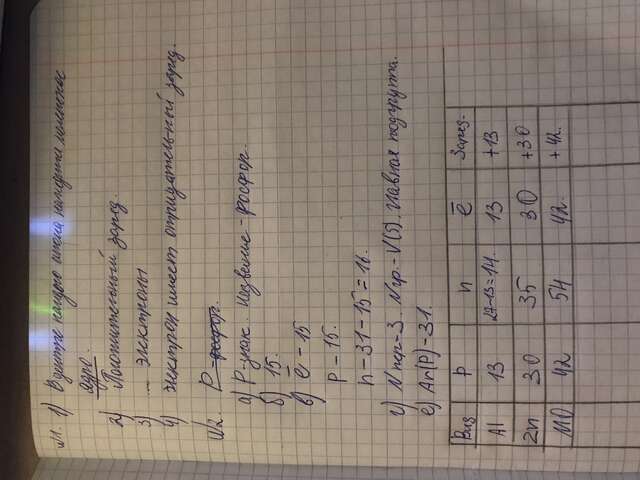 №1. 1) В центре каждого атома находится
ядро.
2) Положительный заряд.
3) – электроны
4) Электрон имеет отрицательный заряд.
№2. P-фосфор.
а) P-знак. Название-фосфор.
б) 15.
в) e̅ – 15
p – 15.
n – 31-15 = 16.
г) N пер-3. N гр.-V(5). Главная подгруппа.
е) Ar(P)-31.
Вид p n e̅ Заряд.
Al 13 27-13=14. 13 +13
Zn 30 35 30 +30
MO 42 54 42. +42.